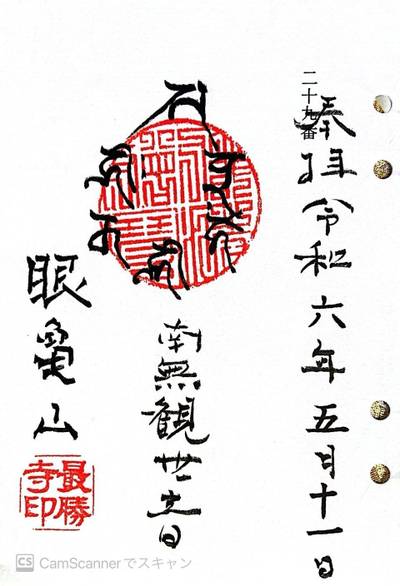 二十九番
奉拝 令和六年五月十一日
南無観世音
眼亀山
最勝
寺印
CS CamScannerでスキャン